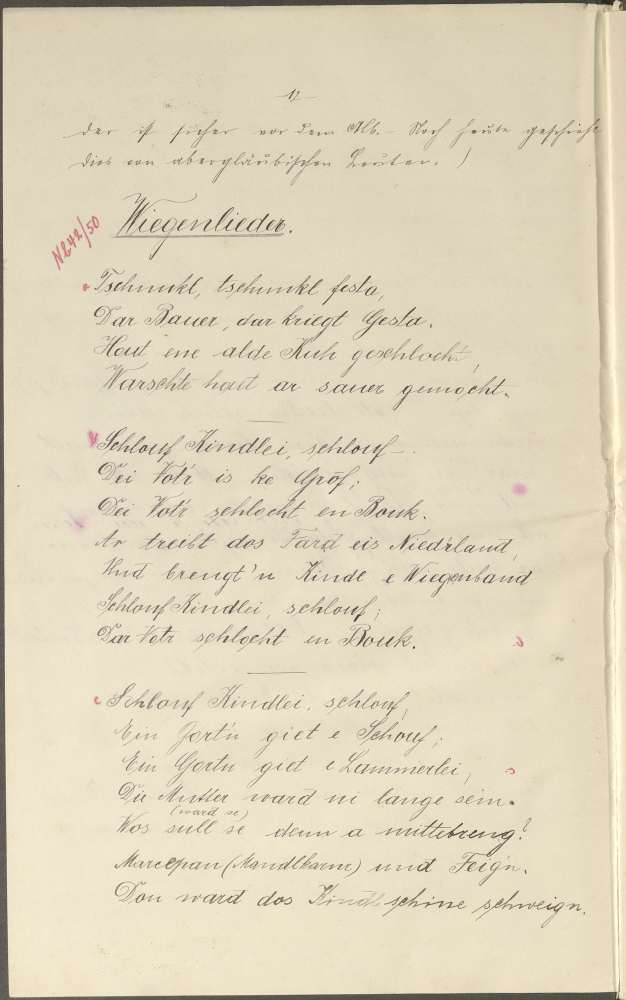 12
der ist sicher vor dem Alb. – Noch heute geschieht
dies von abergläubischen Leuten. )
Wiegenlieder.
Tschunkl, tschunkl festa,
Dar Bauer, dar kriegt Gesta.
Hout ene alde Kuh geschlocht,
Warschte hout ar sauer gemocht.
Schlouf Kindlei, schlouf –
Dei Votr is ke Grof;
Dei Votr schlocht en Bouk.
Ar treibt dos Fard eis Niedrland,
Und brengt'n Kinde e Wiegenband
Schlouf Kindlei, schlouf;
Dar Votr schlocht en Bouk.
Schlouf Kindlei, schlouf,
Ein Gortn giet e Schouf;
Ein Gortn giet e Lammerlei,
Die Mutter ward ni lange sein.
(ward se)
Wos sull se denn a mittebreng?
Marcepan (Mandlkarne) und Feign.
Don ward dos Kindl schine schweign.